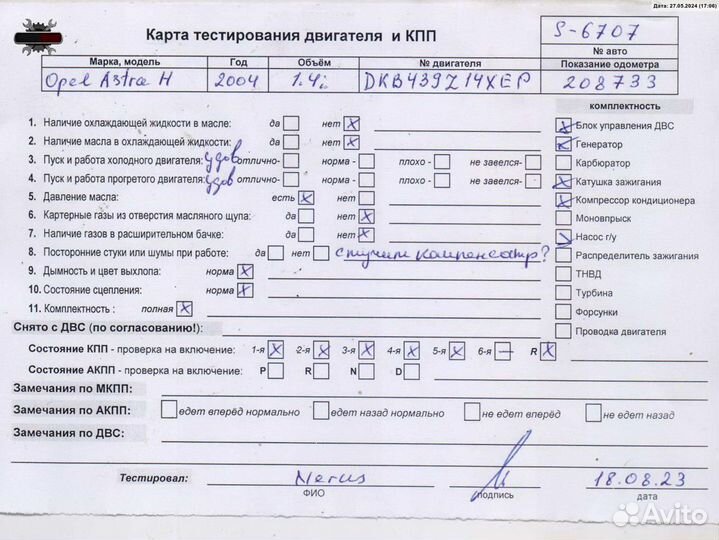 Дата: 27.05.2024 (17:06)
Карта тестирования двигателя и КПП
S-6707
№ авто
Марка, модель Год Объём № двигателя Показание одометра
Opel Astra H 2004 1.4i DKB439Z14XEP 208733
комплектность
1. Наличие охлаждающей жидкости в масле: да нет X
Блок управления ДВС
2. Наличие масла в охлаждающей жидкости: да нет X
Генератор
3. Пуск и работа холодного двигателя: удов отлично- норма - плохо - не завелся-
Карбюратор
4. Пуск и работа прогретого двигателя: удов отлично- норма - плохо - не завелся-
Катушка зажигания
5. Давление масла: есть X нет
Компрессор кондиционера
6. Картерные газы из отверстия масляного щупа: да нет X
Моновпрыск
7. Наличие газов в расширительном бачке: да нет X
Насос г/у
8. Посторонние стуки или шумы при работе: да нет стучит компенсатр?
Распределитель зажигания
9. Дымность и цвет выхлопа: норма X
ТНВД
10. Состояние сцепления: норма X
Турбина
11. Комплектность : полная X
Форсунки
Снято с ДВС (по согласованию!):
Проводка двигателя
Состояние КПП - проверка на включение: 1-я X 2-я X 3-я X 4-я X 5-я X 6-я — R X
Состояние АКПП - проверка на включение: P R N D
Замечания по МКПП:
Замечания по АКПП: едет вперёд нормально едет назад нормально не едет вперёд не едет назад
Замечания по ДВС:
Тестировал: 18.08.23
ФИО подпись дата
Avito